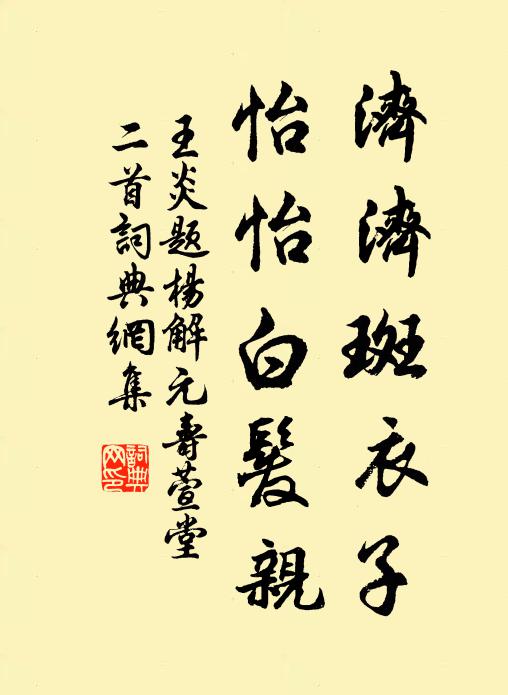 濟濟斑衣子
怡怡白髮親
王炎題楊解元壽萱堂
二首詞典網集
詞典
网印